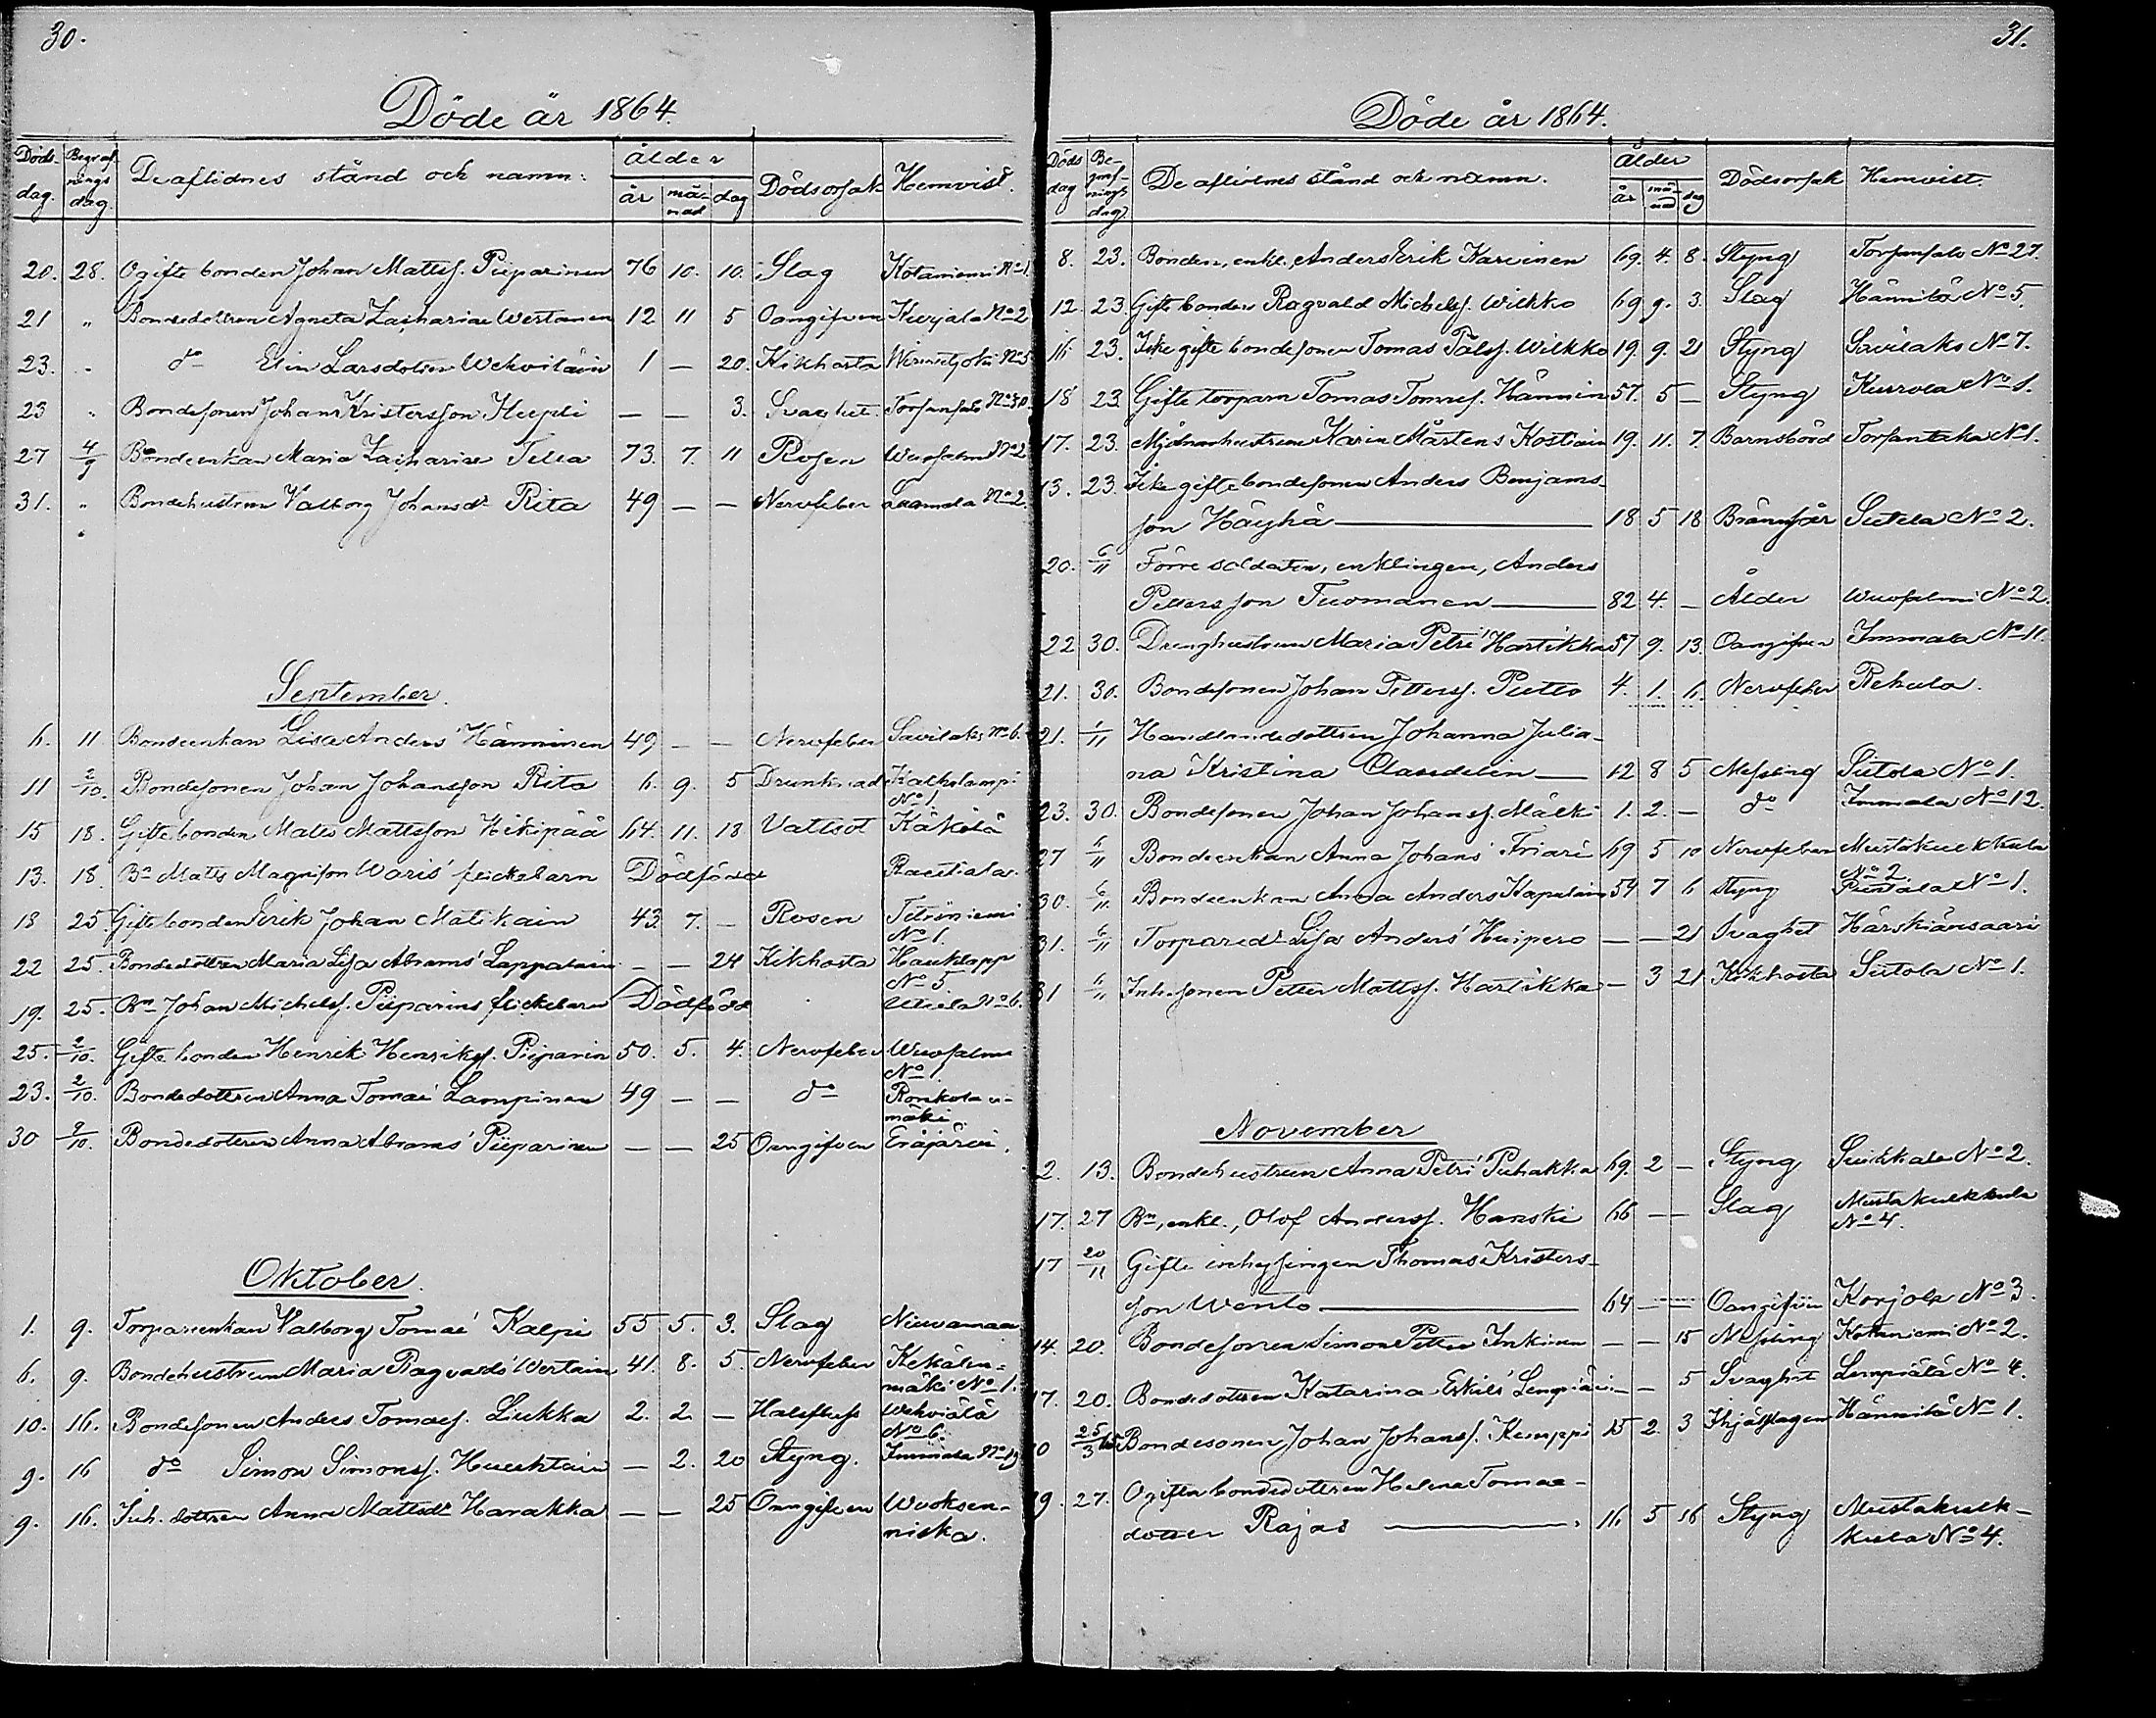 30.
Döde år 1864.
Döds-dag. Begrafnings dag. De aflidnes stånd och namn: Ålder år månad dag Dödsorsak Hemvist.
20. 28. Ogifte bonden Johan Mattsf. Piiparinen 76 10. 10. Slag Kotaniemi No 1.
21 " Bondedottren Agneta Zachariae Westanen 12 11 5 Oangifven Kurjala No 2
23. " do Elin Larsdotter Wehviläin 1 — 20. Kikhosta No 5
23 " Bondesonen Johan Kristersson — — 3. Svaghet. Torsansalo No 30.
27 4/9 Bondeenkan Maria Zachariae Tella 73. 7. 11 Rosen Wuosalmi No 2
31. " Bondehustrun Valborg Johansdr Rita 49 — — Nervfeber Laamala No 2.
September.
6. 11 Bondeenkan Lisa Anders' Hänninen 49 — — Nervfeber Savilaks No 6.
11 2/10. Bondesonen Johan Johansson Rita 6. 9. 5 Drunknad Kalholampi
No 1.
15 18. Gifte bonden Matts Mattsson Hikipää 64. 11. 18 Vattsot Käkelä
13. 18. Bn Matts Magnison Waris' flickebarn Dödfödd Rautiala.
18 25. Gifte bonden Erik Johan Matikain 43. 7. — Rosen Tetriniemi
No 1.
22 25. Bondedottren Maria Lisa Abrams' Lappalain — — 24 Kikhosta Hauklapp
No 5
19. 25. Bn Johan Michelsf. Piiparins flickebarn Dödfödd Utula No 6.
25. 2/10. Gifte bonden Henrik Henriksf. Piiparin 50. 5. 4. Nervfeber Wuosalmi
No 1.
23. 2/10. Bondedottren Anna Tomae' Lampinen 49 — — do Ronkala u-
mäki
30 2/10. Bondedottren Anna Abrams' Piiparinen — — 25 Oangifven Eräjärvi.
Oktober.
1. 9. Torpareenkan Valborg Tomae' Kalpi 55 5. 3. Slag Niuvamaa
6. 9. Bondehustrun Maria Ragvalds' Wertain 41. 8. 5. Nervfeber Kekälin-
mäki No 1.
10. 16. Bondesonen Anders Tomaef. Liukka 2. 2 — Halsfluss Wehviälä
No 6.
9. 16 do Simon Simonsf. — 2. 20 Styng. Immala No 19
9. 16. Inh. dottren Anna Mattsdr Harakka — — 25 Oangifven Wuoksen-
niska.
31.
Döde år 1864.
Döds dag Be-grafnings dag De aflidnes stånd och namn. Ålder år månad dag Dödsorsak Hemvist.
8. 23. Bonden, enkl., Anders Erik Karvinen 69. 4. 8. Styng Torsansalo No 27.
12. 23. Gifte bonden Ragvald Michelsf. Wilkko 69 9. 3. Slag Hännilä No 5.
16 23. Icke gifte bondesonen Tomas Pålsf. Wilkko 19. 9. 21 Styng Savilaks No 7.
18 23 Gifte torparn Tomas Tomaef. Hännin 57. 5 — Styng Kurvola No 1.
17. 23. Mjölnarhustrun Karin Mårtens Kostiain 19. 11. 7. Barnsbörd Torsantaka No 1.
13. 23. Icke gifte bondesonen Anders Benjams-
son Häyhä — 18 5 18 Brännsår Sutela No 2.
20. 6/11 Förre soldaten, enklingen, Anders
Pettersson Tuomanen — 82 4. — Ålder Wuosalmi No 2.
22 30. Drenghustrun Maria Petri' Hartikka 57 9. 13. Oangifven Immala No 11.
21. 30. Bondesonen Johan Pettersf. Putto 4. 1. 6. Nervfeber Rekula.
21. 1/11 Handlandedottren Johanna Julia-
na Kristina Claudelin — 12 8 5 Messling Siitola No 1.
23. 30. Bondesonen Johan Johansf. Mälki 1. 2. — do Immala No 12.
27 6/11 Bondeenkan Anna Johans' Friari 69 5 10 Nervfeber Mustakulkkula
No 2.
30. 6/11 Bondeenkan Anna Anders Kapulain 54 7 6 Styng Puntala No 1.
31. 6/11 Torparedr Lisa Anders' Huipero — — 21 Svaghet Härskiänsaari
31 6/11 Inh. sonen Petter Mattsf. Hartikka — 3 21 Kikhosta Siitola No 1.
November
2. 13. Bondehustrun Anna Petri' Puhakka 69. 2 — Styng Suikkala No 2.
17. 27 Bn, enkl., Olof Andersf. Hanski 66 — — Slag Mustakulkkula
No 4.
17 20/11 Gifte inhysingen Thomas Kristers-
son Wento — 64 — — Oangifven Korjola No 3.
14. 20. Bondesonen Simon Petter Inkinen — — 15 Messling Kotaniemi No 2.
17. 20. Bondedottren Katarina Eskils' Lempiäi — — 5 Svaghet Lempiälä No 4.
25/3 65 Bondesonen Johan Johansf. Kemppi 15 2. 3 Ihjälslagen Hännilä No 1.
19. 27. Ogifta bondedottren Helena Tomae-
dotter Rajas — 16 5 16 Styng Mustakulk-
kula No 4.